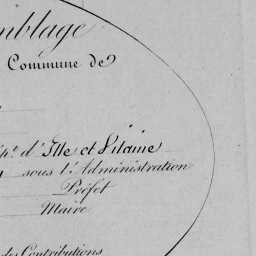 mblage
Commune de
pt. d'Ille et Vilaine
sous l'Administration
Préfet
Maire
des Contributions